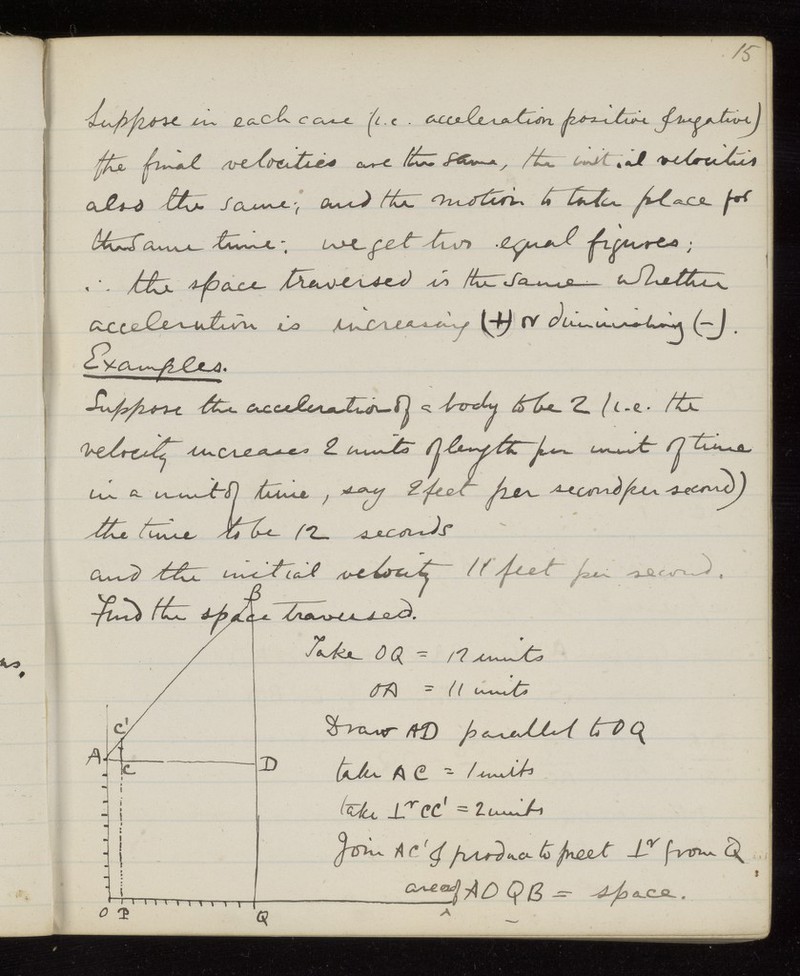 15
Suppose in each case (i.e. acceleration positive & negative)
the final velocities are the same, the initial velocities
also the same; and the motion to take place for
the same time: we get two equal figures;
∴ the space traversed is the same whether
acceleration is increasing (+) or diminishing (-).
Examples.
Suppose the acceleration of a body to be 2 (i.e. the
velocity increases 2 units of length per unit of time
in a unit of time, say 2 feet per second per second)
the time to be 12 seconds
and the initial velocity 11 feet per second.
Find the space traversed.
B
Take OQ = 12 units
OA = 11 units
Draw AD parallel to OQ
take AC = 1 units
take ⊥r CC' = 2 units
Join AC' & produce to meet ⊥r from Q
area of AOQB = space.
C'
A
C
D
O P Q
as.